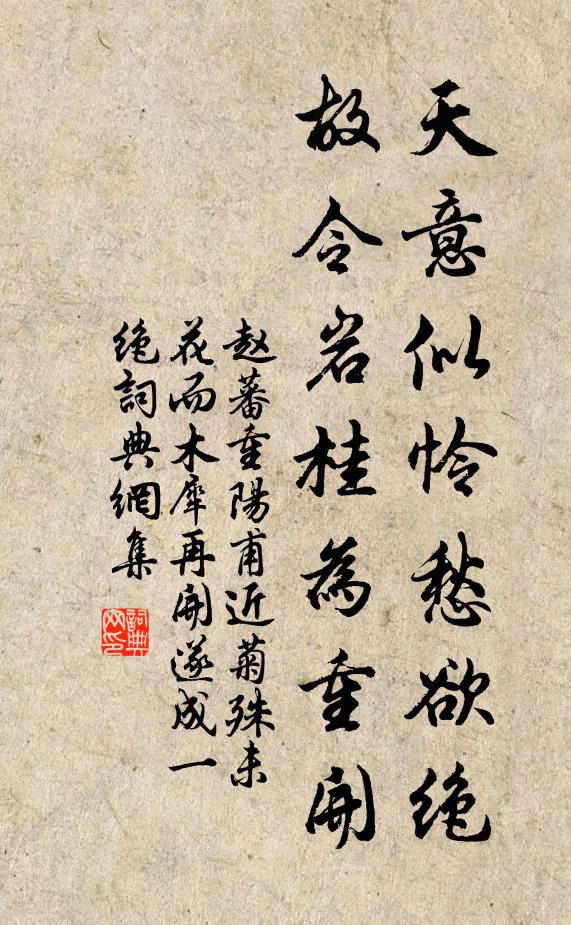 天意似怜愁欲绝
故令岩桂為重開
赵蕃重陽甫近菊殊未
花而木犀再開遂成一
绝詞典網集
詞典网印